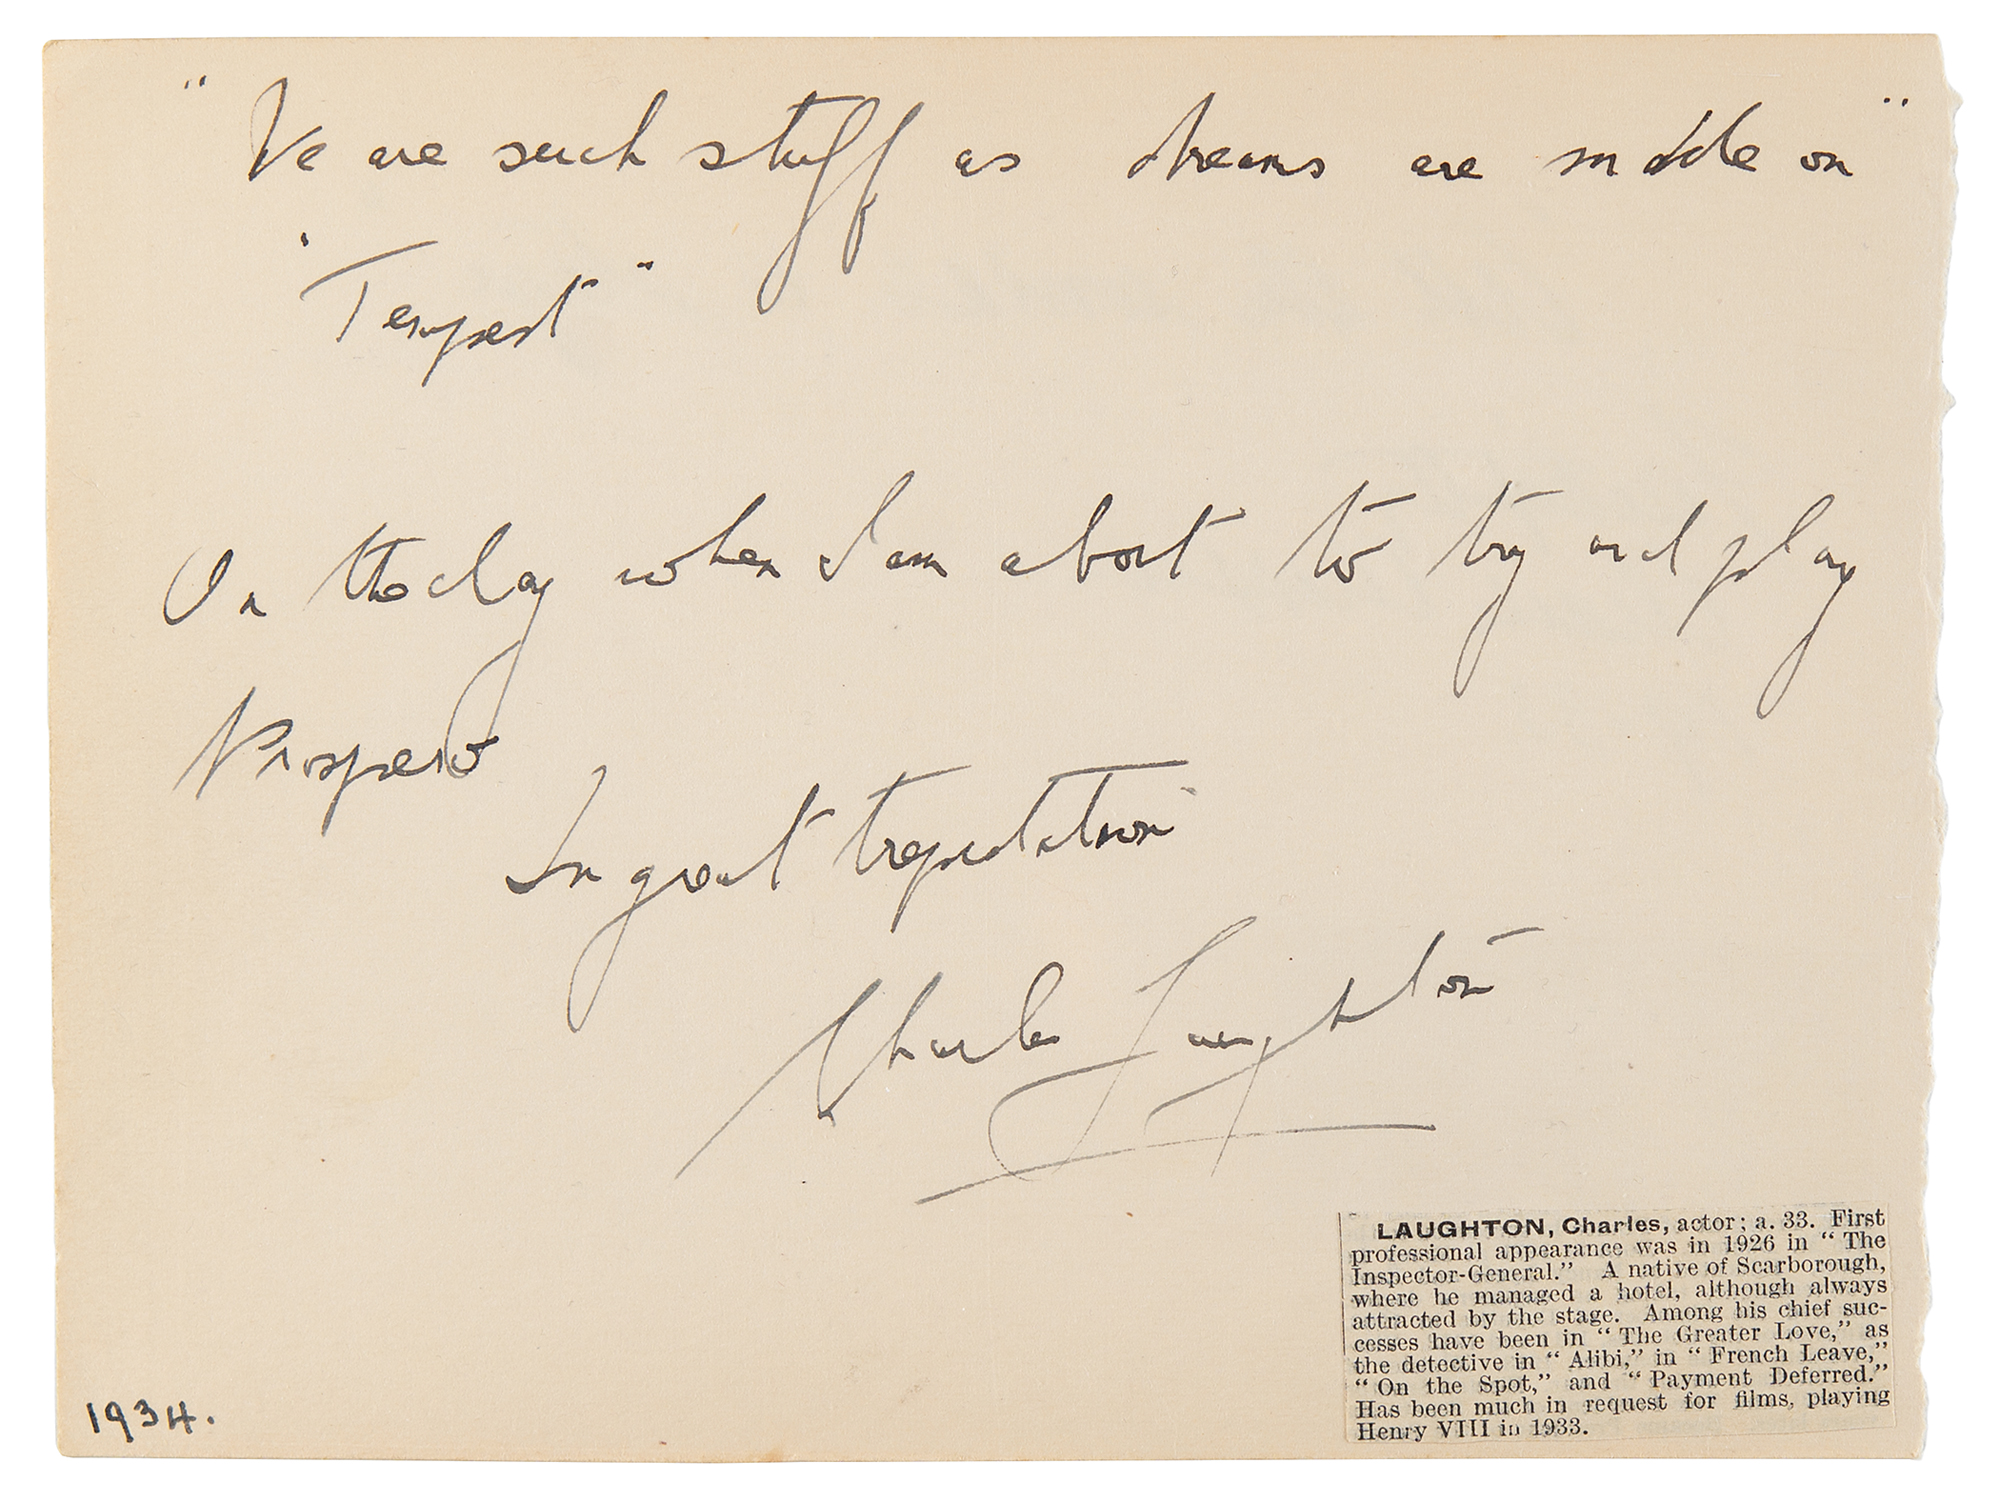 "We are such stuff as dreams are made on"
"Tempest"
On the day when I am about to try and play
Prospero
In great trepidation
Charles Laughton
LAUGHTON, Charles, actor; a. 33. First
professional appearance was in 1926 in "The
Inspector-General." A native of Scarborough,
where he managed a hotel, although always
attracted by the stage. Among his chief suc-
cesses have been in "The Greater Love," as
the detective in "Alibi," in "French Leave,"
"On the Spot," and "Payment Deferred."
Has been much in request for films, playing
Henry VIII in 1933.
1934.